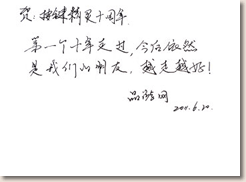 贺：按键精灵十周年
第一个十年走过，今后依然
是我们的朋友，越走越好！
网
2011.6.20.